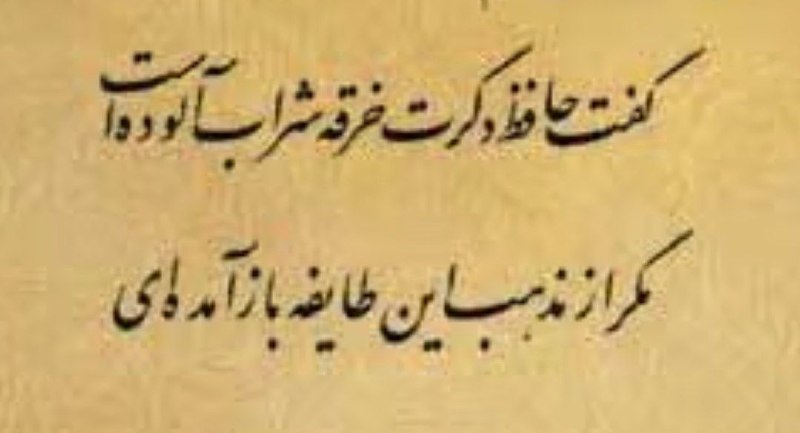 گفت حافظ دگرت خرقه شراب آلوده است
مگر از مذهب این طایفه بازآمده‌ای